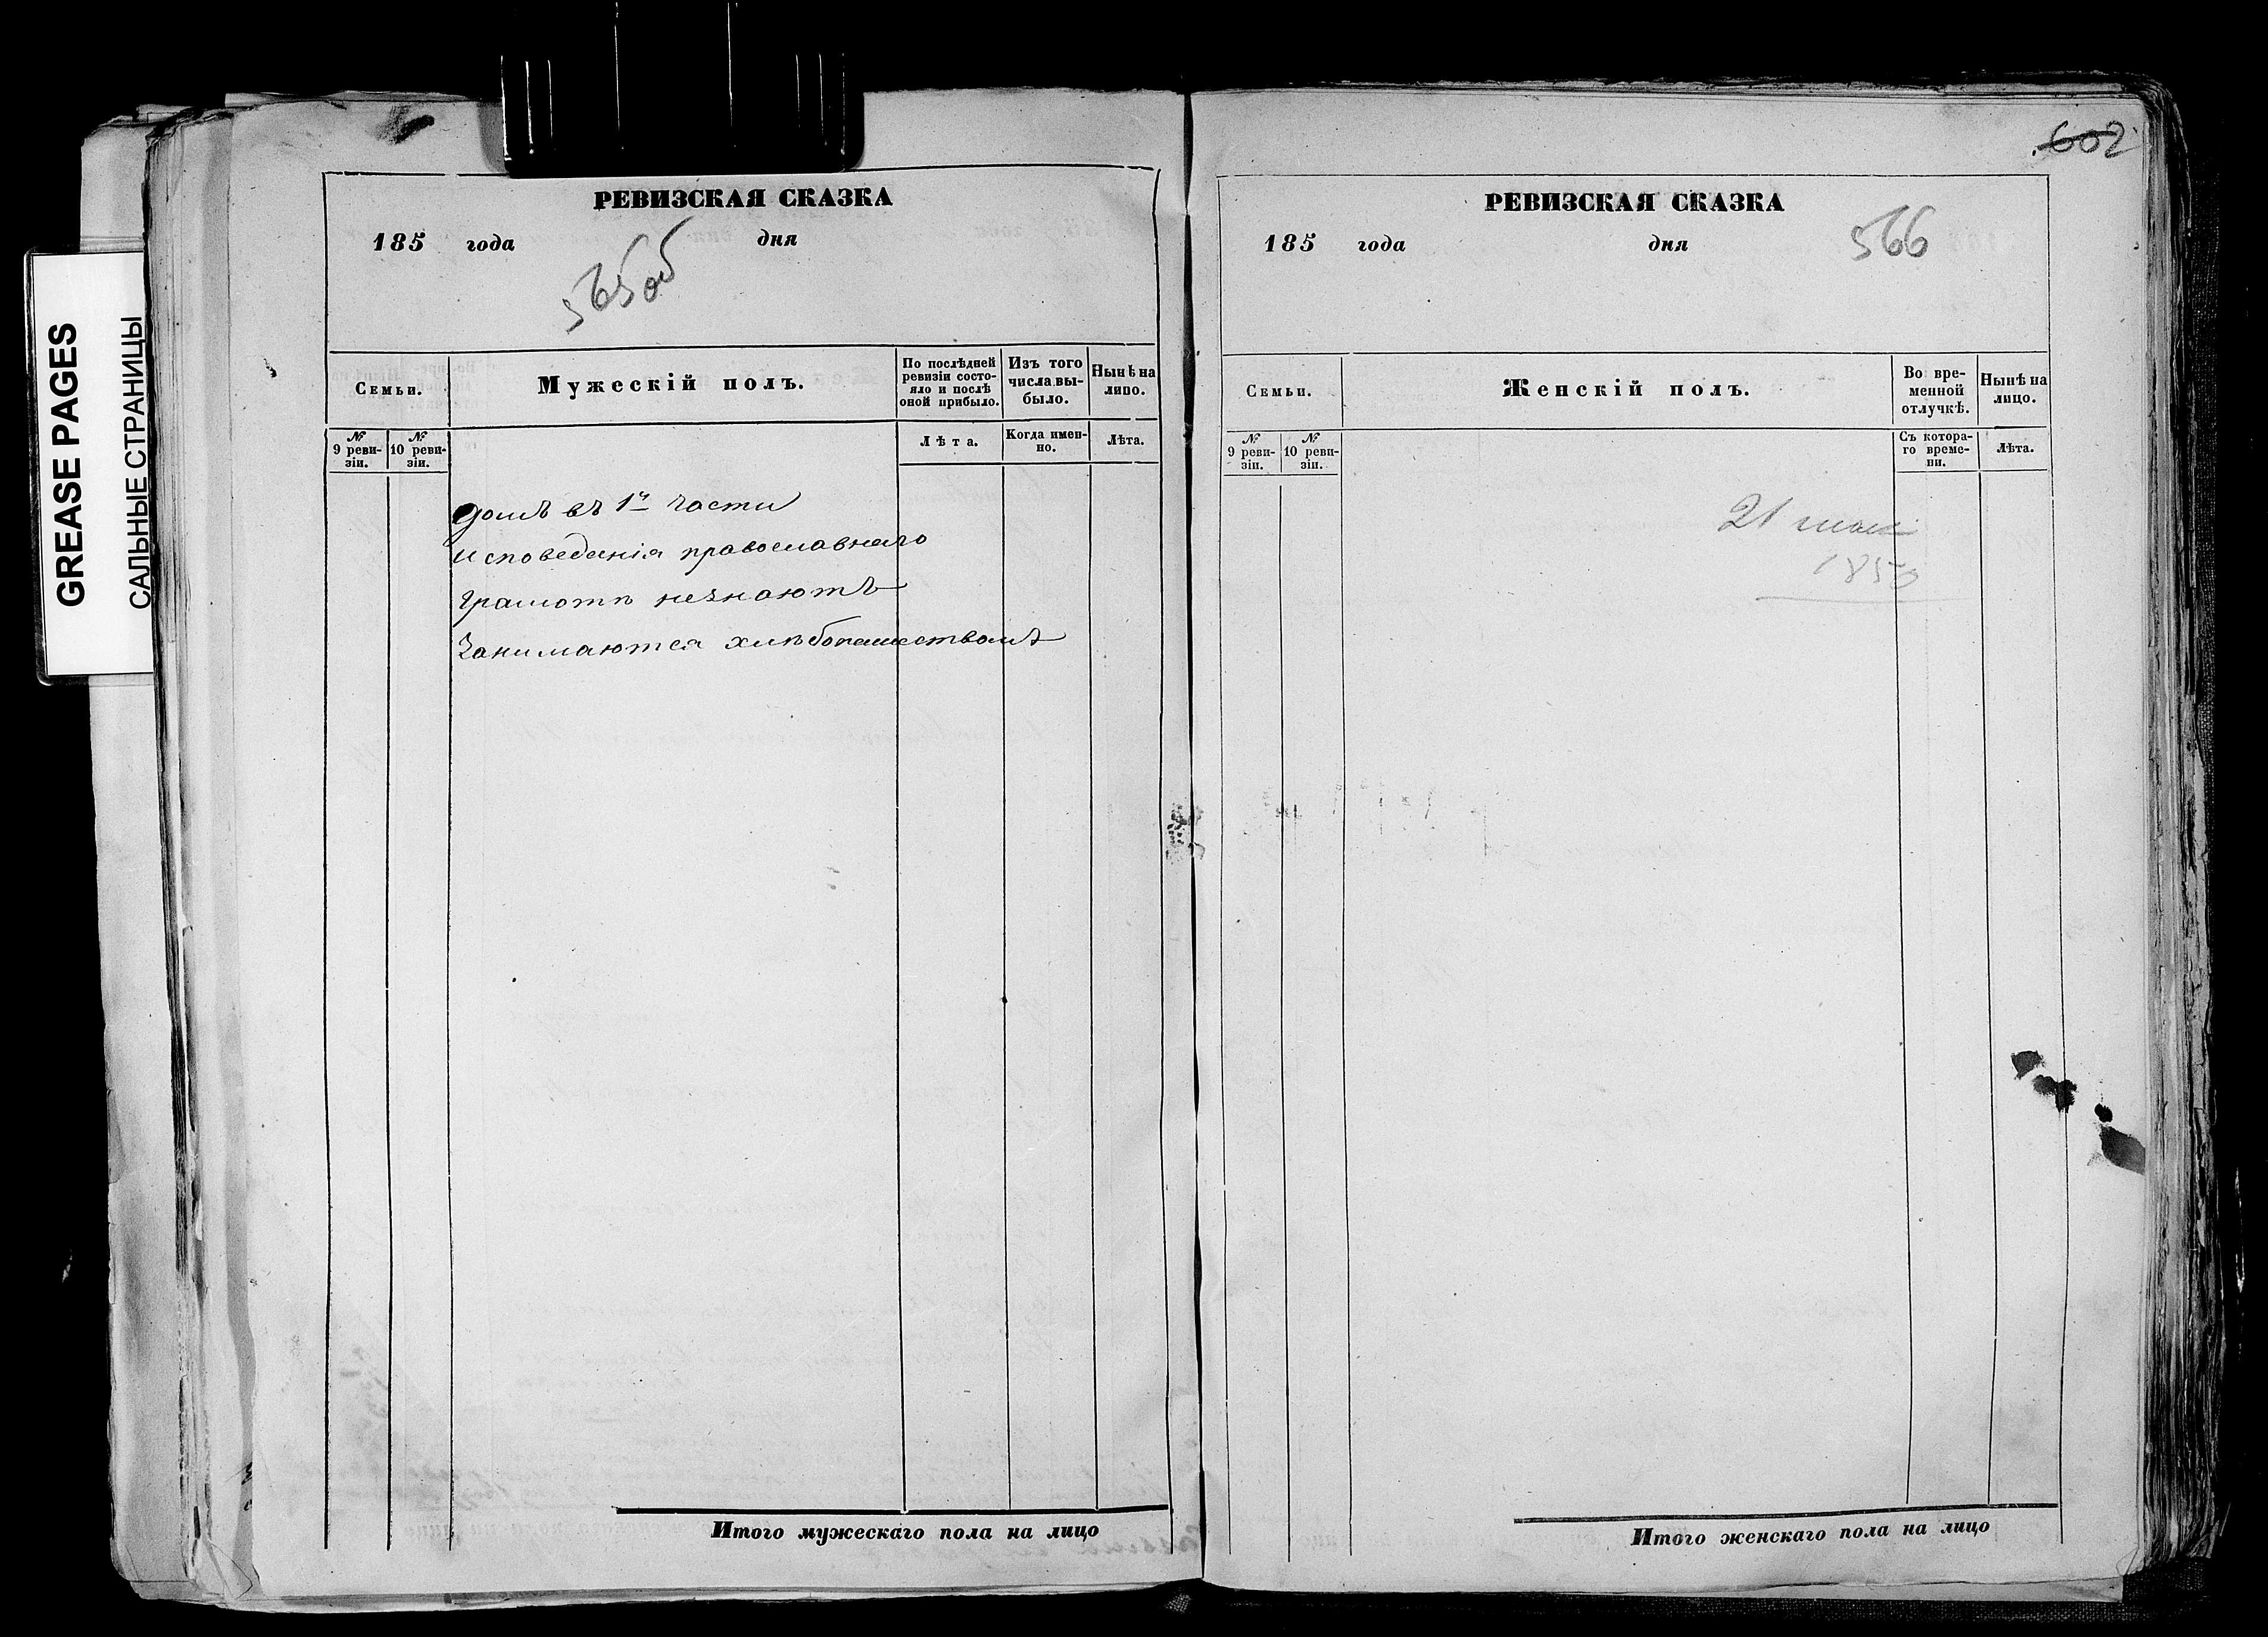 GREASE PAGES
САЛЬНЫЕ СТРАНИЦЫ
РЕВИЗСКАЯ СКАЗКА
185 года дня
565об
Семьи.
Мужескій полъ.
По послѣдней ревизіи состо-
яло и послѣ
оной прибыло.
Изъ того
числа вы-
было.
Нынѣ на
лицо.
№
9 реви-
зіи.
№
10 реви-
зіи.
Лѣта.
Когда имен-
но.
Лѣта.
домъ въ 1й части
исповеданія православнаго
Грамотѣ незнаютъ
Занимаются хлѣбопашествомъ
Итого мужескаго пола на лицо
602
РЕВИЗСКАЯ СКАЗКА
185 года дня
566
Семьи.
Женскій полъ.
Во вре-
менной
отлучкѣ.
Нынѣ на
лицо.
№
9 реви-
зіи.
№
10 реви-
зіи.
Съ котора-
го време-
ни.
Лѣта.
21 мая
185
Итого женскаго пола на лицо